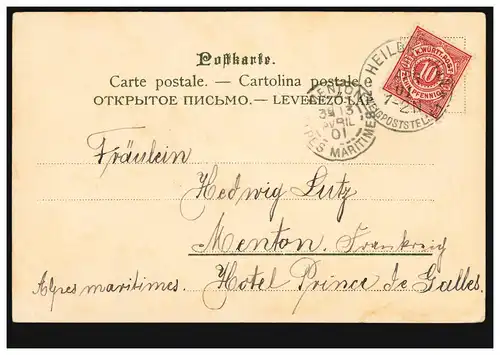 Postkarte.
Carte postale. — Cartolina postale
ОТКРЫТОЕ ПИСЬМО. — LEVELEZŐ-LAP
K. WÜRTT. POST
10
PFENNIG
HEILBRONN
1-2 N
MENTON
3E 13
AVRIL
01
ALPES MARITIMES
Fräulein
Hedwig Lutz
Menton. Frankreich
Alpes maritimes. Hotel Prince de Galles.